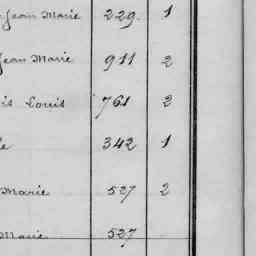 Jean Marie 229. 1
Jean Marie 911 2
is Louis 761 2
e 342 1
Marie 527 2
Marie 527